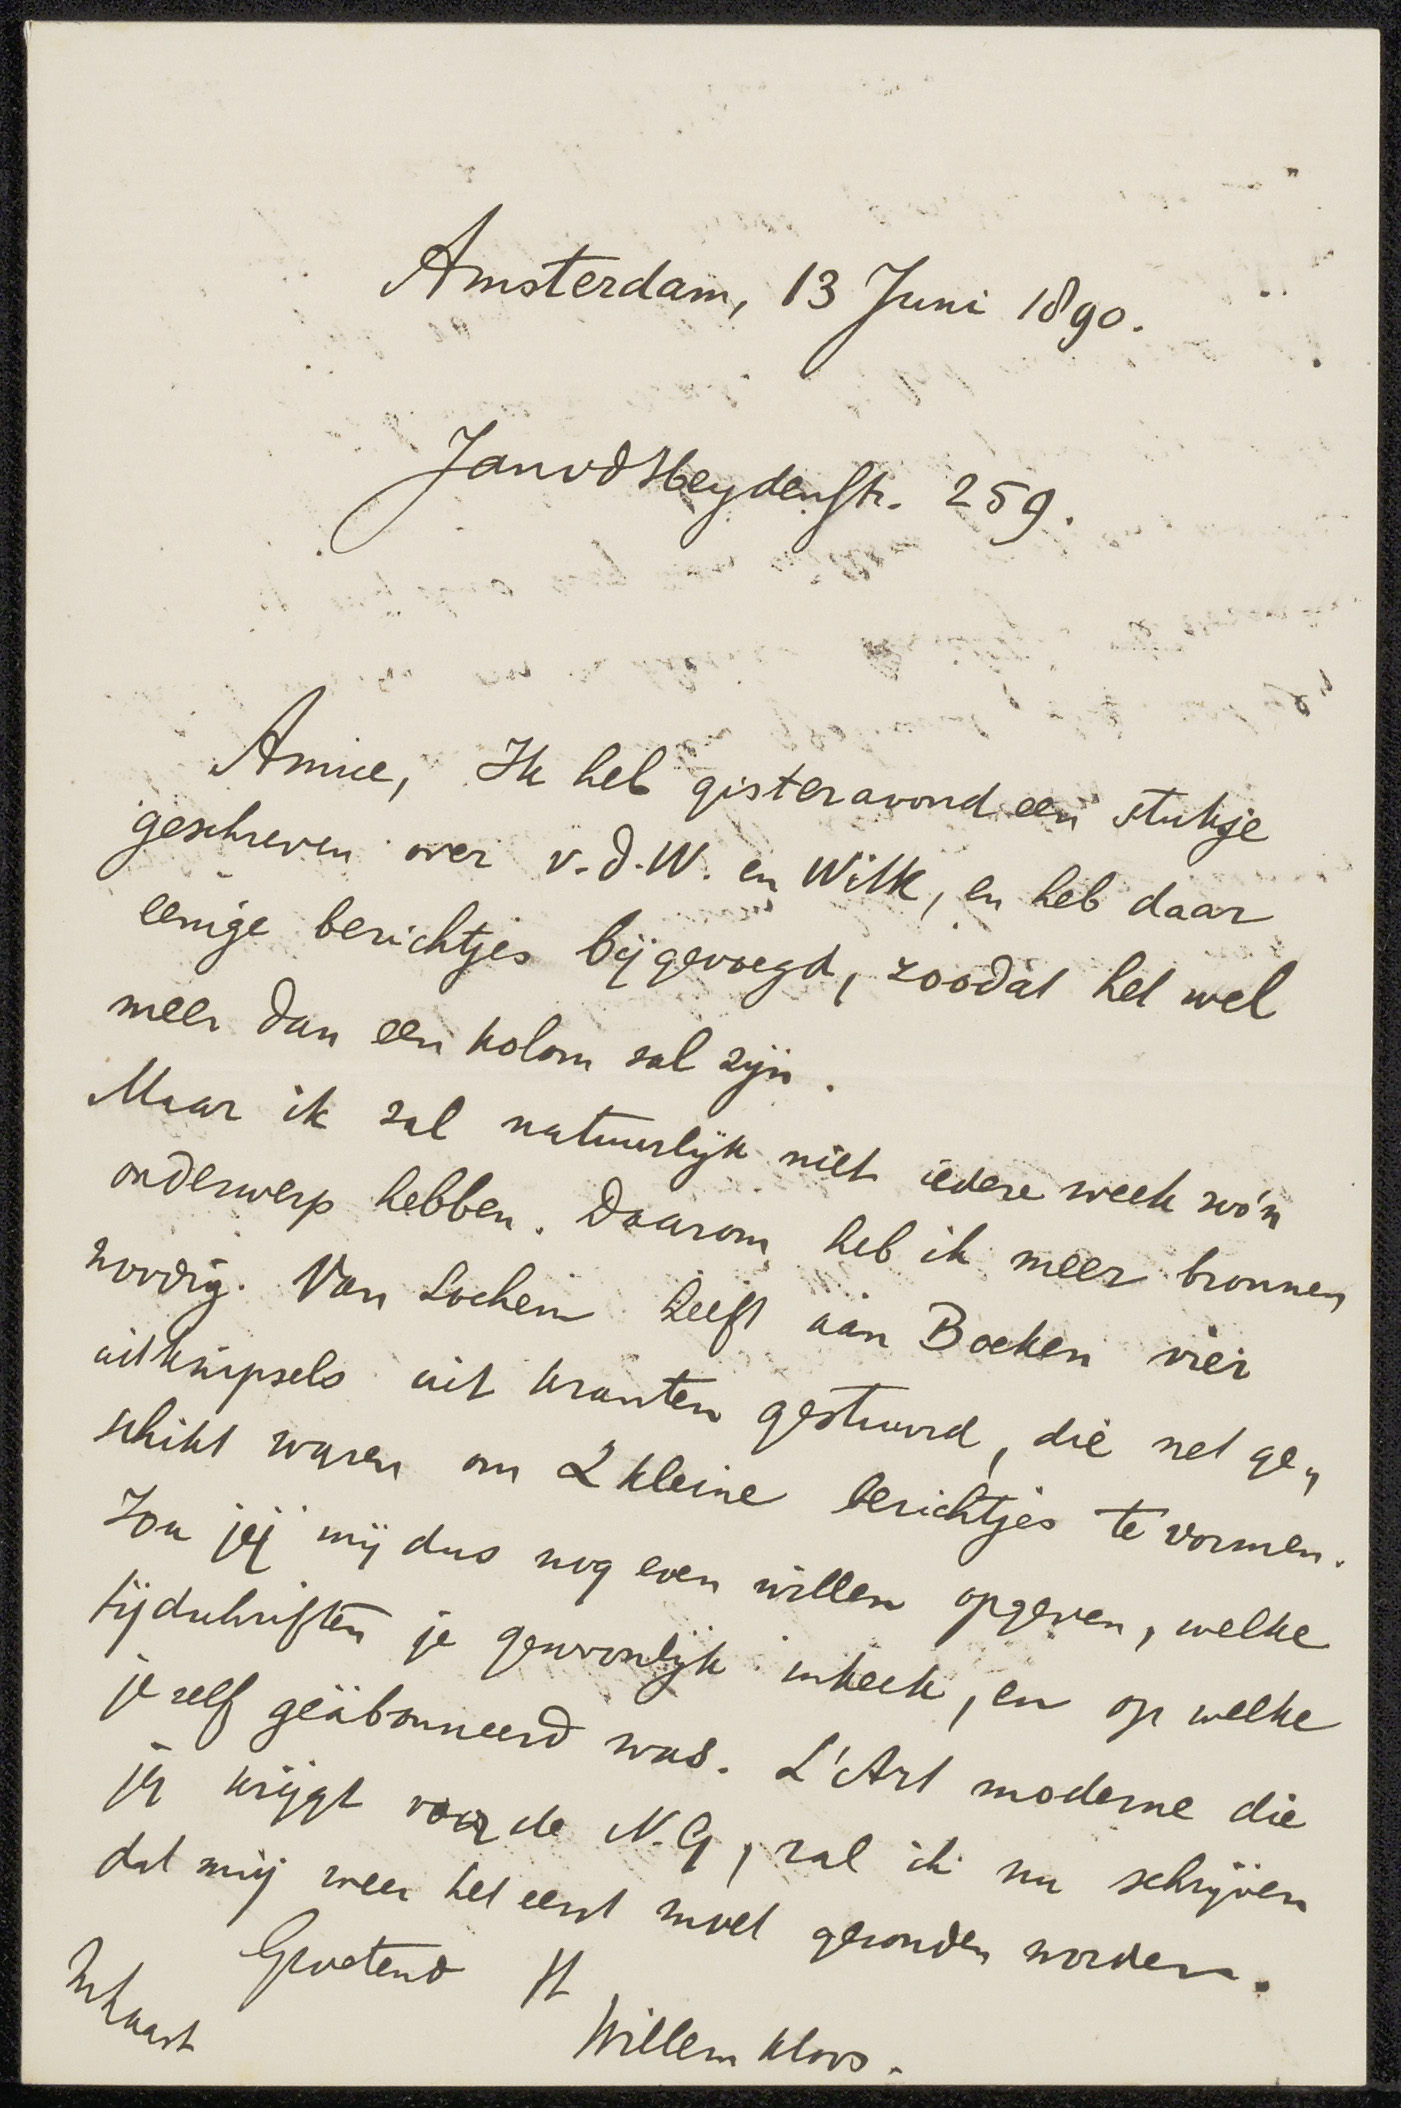 Amsterdam, 13 Juni 1890.
Jan v d Heydenstr. 259.
Amice, Ik heb gisteravond een stukje
geschreven over v.d.W. en Witk, en heb daar
eenige berichtjes bijgevoegd, zoodat het wel
meer dan een kolom zal zijn.
Maar ik zal natuurlijk niet iedere week zoo'n
onderwerp hebben. Daarom heb ik meer bronnen
noodig. Van Lochem heeft aan Boeken vier
uitknipsels uit kranten gestuurd, die net ge„
schikt waren om 2 kleine berichtjes te vormen.
Zou jij mij dus nog even willen opgeven, welke
tijdschriften je gewoonlijk inkeek, en op welke
je zelf geäbonneerd was. L'Art moderne die
jij krijgt voor de N.G, zal ik nu schrijven
dat mij weer het eerst moet gezonden worden.
Groetend tt
Willem Kloos.
In haast